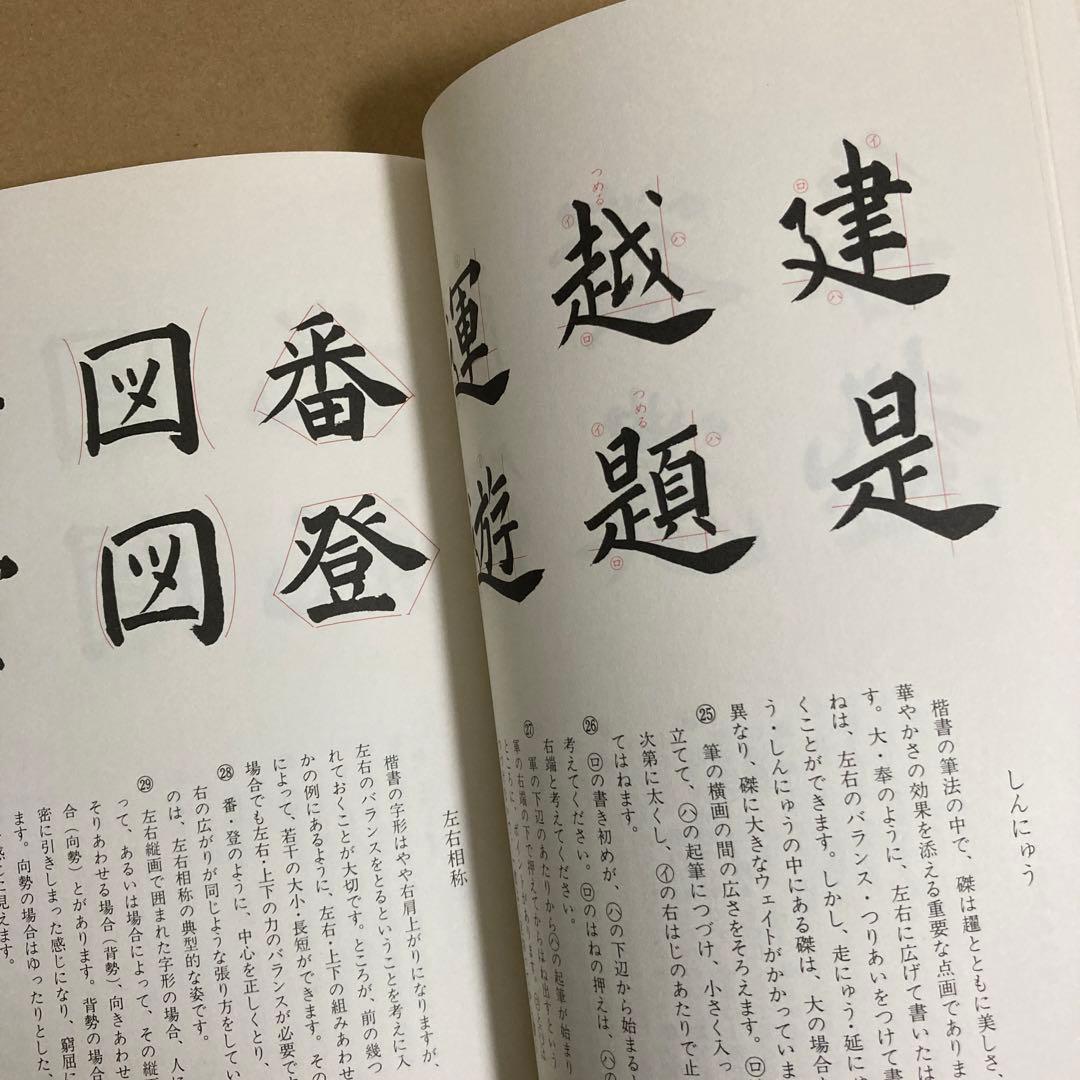 建
是
イ
ロ
ハ
越
題
つめる
イ
ハ
ロ
つめる
イ
ハ
ロ
運
遊
しんにゅう
楷書の筆法の中で、磔は趯とともに美しさ、
華やかさの効果を添える重要な点画でありま
す。大・奉のように、左右に広げて書いたは
ねは、左右のバランス・つりあいをつけて書
くことができます。しかし、走にゅう・延に
う・しんにゅうの中にある磔は、大の場合
異なり、磔に大きなウェイトがかかっていま
㉕ 筆の横画の間の広さをそろえます。ロ
立てて、ハの起筆につづけ、小さく入っ
次第に太くし、イの右はじのあたりで止
てはねます。
㉖ ロの書き初めが、ハの下辺から始まる
考えてください。ロのはねの押えは、ハの
右端と考えてください。
㉗ 軍の下辺のあたりからハの起筆が始まり
軍の右端の下で押えてからはね出すという
番
登
図
図
左右相称
楷書の字形はやや右肩上がりになりますが、
左右のバランスをとるということを考えに入
れておくことが大切です。ところが、前の幾つ
かの例にあるように、左右・上下の組みあわせ
によって、若干の大小・長短ができます。その
場合でも左右・上下の力のバランスが必要で
㉘ 番・登のように、中心を正しくとり、
右の広がりが同じような張り方をしてい
のは、左右相称の典型的な姿です。
㉙ 左右縦画で囲まれた字形の場合、人
って、あるいは場合によって、その縦画
そりあわせる場合（背勢）、向きあわせ
合（向勢）とがあります。背勢の場合
密に引きしまった感じになり、窮屈に
ます。向勢の場合はゆったりとした、
感じに見えます。